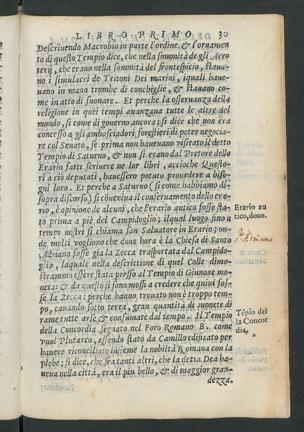 LIBRO PRIMO 30
Descrivendo Macrobio in parte l'ordine, & l'ornamen
to di questo Tempio dice, che nella sommità de gli Acro
terij, che erano nella sommità del frontespicio, stava-
no i simulacri de Tritoni Dei marini, iquali have-
vano in mano trombe di conchiglie, & stavano co-
me in atto di suonare. Et perche la osservanza della
religione in quei tempi avanzava tutte le altre del
mondo, si come di governo ancora; si dice che non era
concesso a gli ambasciadori forestieri di poter negocia-
re col Senato, se prima non havevano visitato il detto
Tempio di Saturno, & non si erano dal Pretore dello
Erario fatti scrivere ne lor libri, accioche Questo-
ri a ciò deputati, havessero potuto provedere a biso-
gni loro. Et perche a Saturno (si come habbiamo di-
sopra discorso) si conteniva il conservamento dello era-
rio, è opinione de alcuni, che l'erario antico fosse sta-
to prima a piè del Campidoglio; ilqual luogo sino a
tempi nostri si chiama san Salvatore in Erario; on-
de molti vogliono che dove hora è la Chiesa di Santo
Adriano fosse già la Zecca trasportata dal Campido-
glio, laquale nella descrittione di quel Colle dimo-
strammo essere stata presso al Tempio di Giunone mo-
neta: & da questo si sono mossi a credere che quivi fos-
se la Zecca; perche hanno trovato non è troppo tem-
po, cavando sotto terra, gran quantità di monete di
rame tutte arse & consumate dal tempo. Il Tempio
della Concordia segnato nel Foro Romano B. come
vuol Plutarco, essendo stato da Camillo edificato per
havere riconciliato insieme la nobiltà Romana con la
plebe; si dice, che fra tanti altri, che la detta Dea ha-
veva nella città, era il piu bello, & di maggior gran-
dezza.
Erario an
tico, dove.
Adriano
Tẽpio del
la Concor
dia.